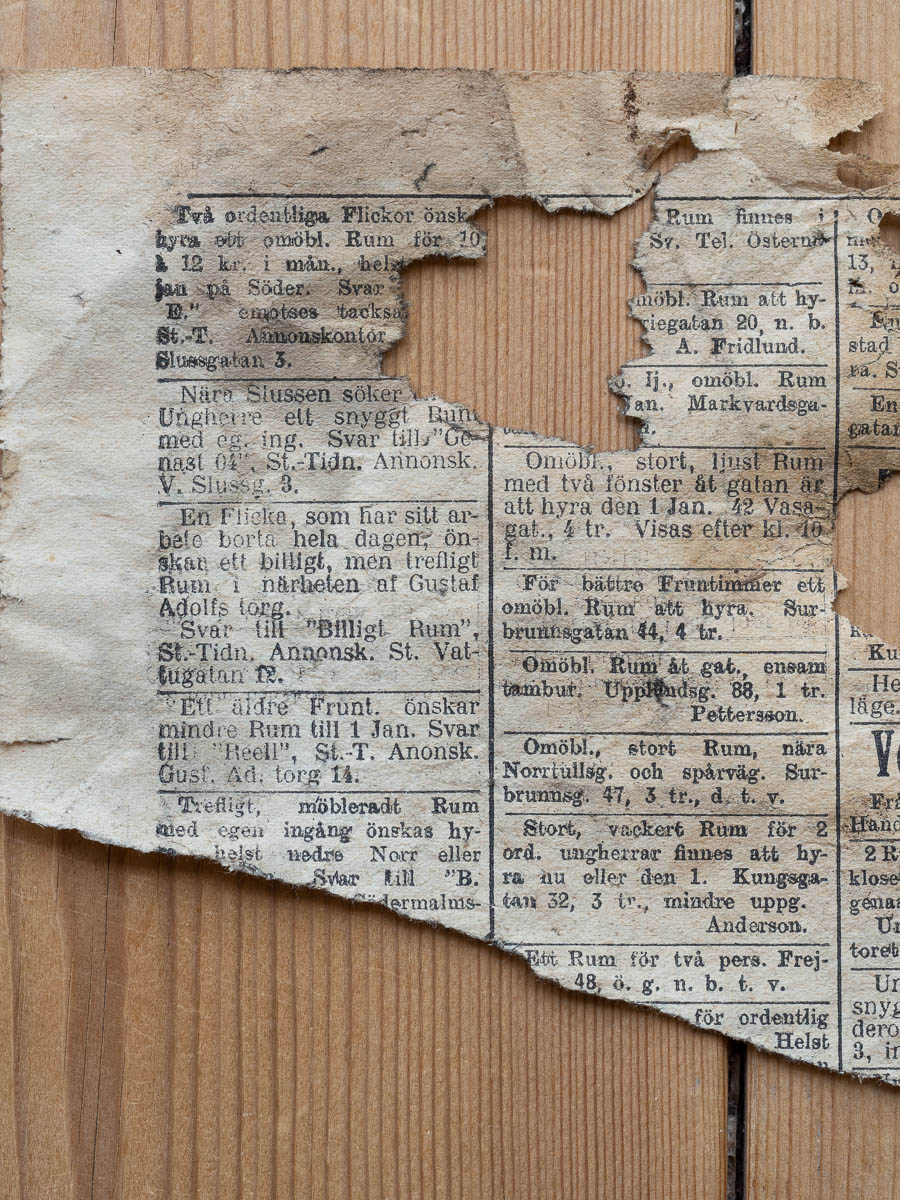 Två ordentliga Flickor önsk
hyra ett omöbl. Rum för 10
à 12 kr. i mån., helst
jan på Söder. Svar
E." emotses tacksa
St.-T. Annonskontor
Slussgatan 3.
Nära Slussen söker
Ungherre ett snyggt Rum
med eg. ing. Svar till "Ge-
nast 04", St.-Tidn. Annonsk.
V. Slussg. 3.
En Flicka, som har sitt ar-
bete borta hela dagen, ön-
skan ett billigt, men trefligt
Rum i närheten af Gustaf
Adolfs torg.
Svar till "Billigt Rum",
St.-Tidn. Annonsk. St. Vat-
tugatan 12.
Ett äldre Frunt. önskar
mindre Rum till 1 Jan. Svar
till "Reell", St.-T. Anonsk.
Gust. Ad. torg 14.
Trefligt, möbleradt Rum
med egen ingång önskas hy-
helst nedre Norr eller
Svar till "B.
Södermalms-
Rum finnes i
Sv. Tel. Österm
möbl. Rum att hy-
riegatan 20, n. b.
A. Fridlund.
o. lj., omöbl. Rum
an. Markvardsga-
Omöbl., stort, ljust Rum
med två fönster åt gatan är
att hyra den 1 Jan. 42 Vasa-
gat., 4 tr. Visas efter kl. 10
f. m.
För bättre Fruntimmer ett
omöbl. Rum att hyra. Sur-
brunnsgatan 44, 4 tr.
Omöbl. Rum åt gat., ensam
tambur. Upplandsg. 88, 1 tr.
Pettersson.
Omöbl., stort Rum, nära
Norrtullsg. och spårväg. Sur-
brunnsg. 47, 3 tr., d. t. v.
Stort, vackert Rum för 2
ord. ungherrar finnes att hy-
ra nu eller den 1. Kungsga-
tan 32, 3 tr., mindre uppg.
Anderson.
Ett Rum för två pers. Frej-
48, ö. g. n. b. t. v.
för ordentlig
Helst
13,
stad
ra. S
En
gatan
Ku
He
läge.
V
Frå
Hand
2 R
klose
genas
Un
toret
Un
snyg
dero
3, in